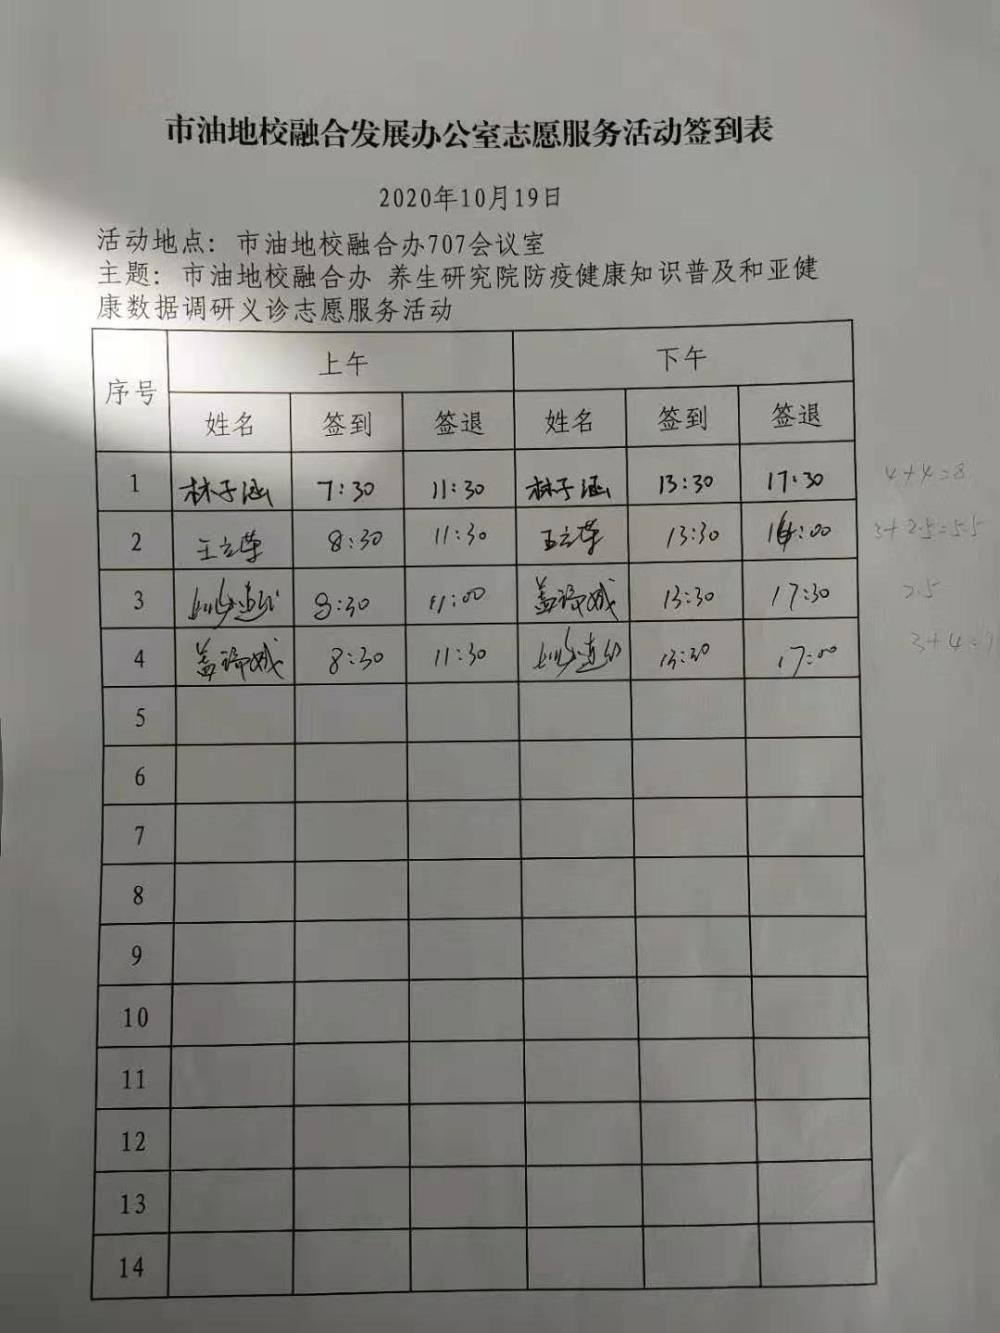 市油地校融合发展办公室志愿服务活动签到表
2020年10月19日
活动地点：市油地校融合办707会议室
主题：市油地校融合办 养生研究院防疫健康知识普及和亚健
康数据调研义诊志愿服务活动
序号 上午 下午
姓名 签到 签退 姓名 签到 签退
1 林子涵 7:30 11:30 林子涵 13:30 17:30 4+4=8
2 王立荣 8:30 11:30 王立荣 13:30 16:00 3+2.5=5.5
3 8:30 11:00 13:30 17:30 2.5
4 8:30 11:30 13:30 17:00 3+4=
5
6
7
8
9
10
11
12
13
14